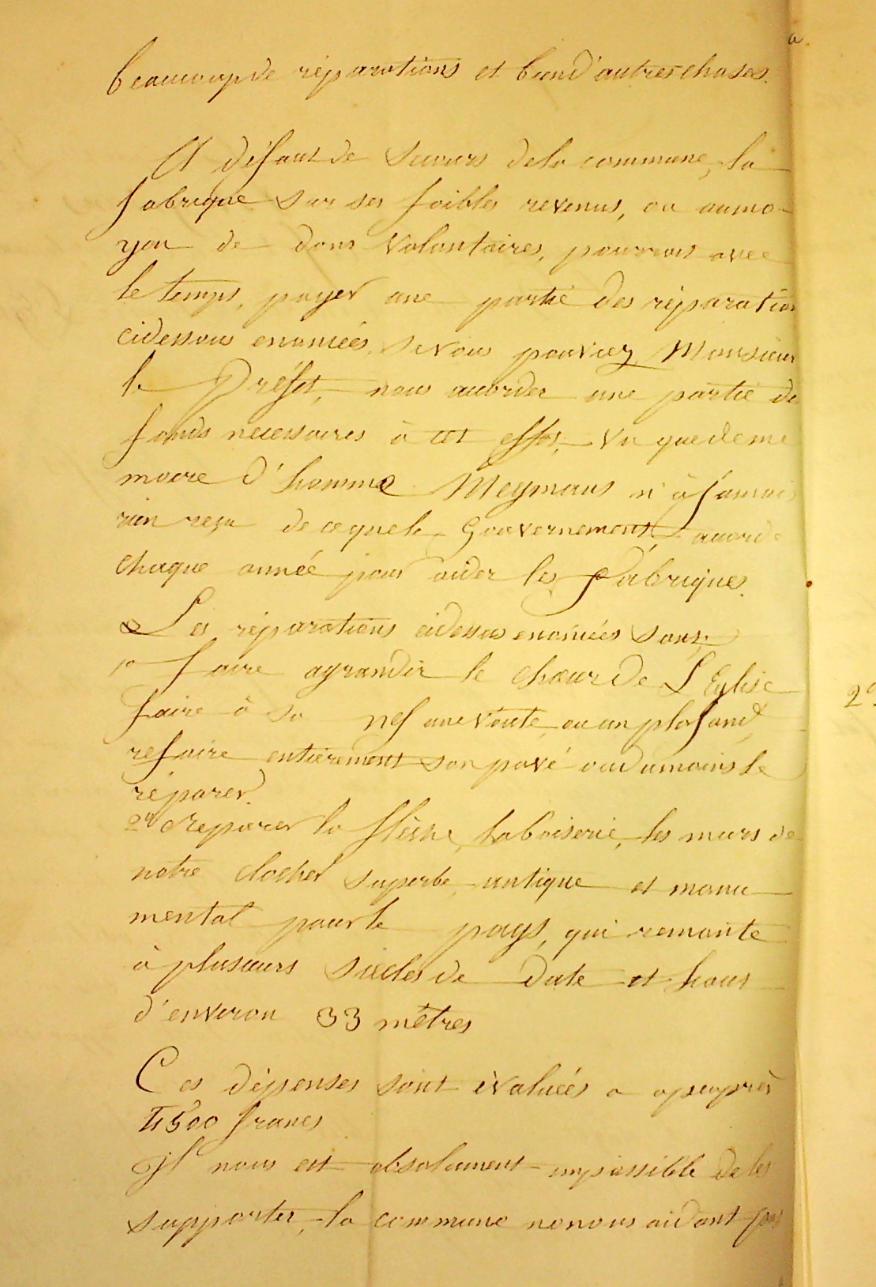 beaucoup de réparations et bien d'autres choses.
A défaut de secours de la commune, la
fabrique sur ses foibles revenus, ou aumo-
yen de dons volontaires, pourrois avec
le temps, payer une partie des réparation
cidessous enoncées, si vous pouviez Monsieur
le Préfet, nous accorder une partie de
fonds necessaires à cet effet, vu que de me
moire d'homme Meymans n'à jamais
rien reçu de ce que le Gouvernement accorde
chaque année pour aider les Fabriques.
Les réparations cidessus enoncées sont;
1º faire agrandir le choeur de L'Eglise
faire à sa nef une voute, ou un plafond,
refaire entièrement son pavé ou du moins le
réparer.
2º reparer la flèche, la boiserie, les murs de
notre clocher superbe, antique et monu-
mental pour le pays, qui remonte
à plusieurs siecles de date et haut
d'environ 33 mètres
Ces dépenses sont évaluées a apeuprès
4500 francs
Il nous est absolument impossible de les
supporter, la commune ne nous aidant pas
2º